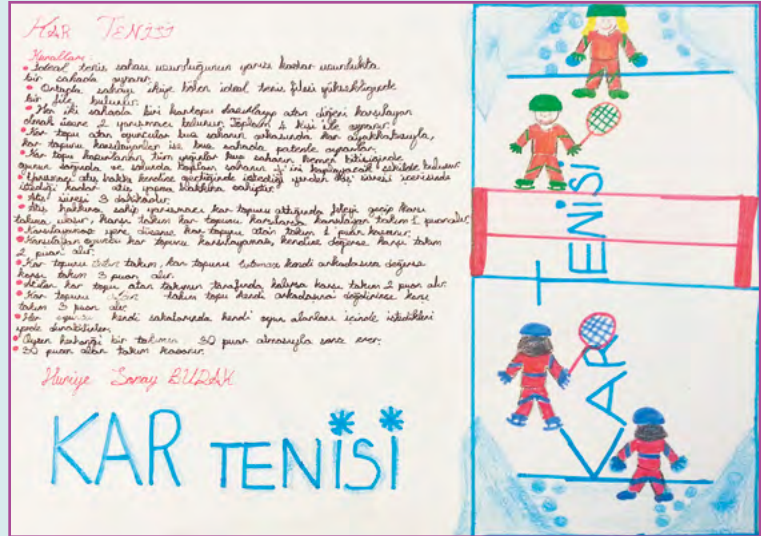 KAR TENİSİ
Kuralları:
• İdeal tenis sahası uzunluğunun yarısı kadar uzunlukta
bir sahada oynanır.
• Ortada sahayı ikiye bölen ideal tenis filesi yüksekliğinde
bir file bulunur.
• Her iki sahada biri kartopu hazırlayıp atan diğeri karşılayan
olmak üzere 2 yarışmacı bulunur. Toplam 4 kişi ile oynanır.
• Kar topu atan oyuncular buz sahanın arkasında kar ayakkabısıyla,
kar topunu karşılayanlar ise buz sahada patenle oynarlar.
• Kar topu hazırlanan tüm yığınlar buz sahanın hemen bitişiğinde
oyunun sağında ve solunda kaplan sahanın ini kaplayacak şekilde bulunur.
• Yarışmacı atış hakkı kendine geçtiğinde istediği yerden atış süresi içerisinde
istediği kadar atış yapma hakkına sahiptir.
• Atış süresi 3 dakikadır.
• Atış hakkına sahip yarışmacı kar topunu attığında fileyi geçip karşı
takıma ulaşır, karşı takım kar topunu karşılarsa karşılayan takım 1 puan alır.
• Karşılayamaz yere düşerse kar topunu atan takım 1 puan kazanır.
• Karşılayan oyuncu kar topunu karşılayamaz, kendine değerse karşı takım
2 puan alır.
• Kar topunu takım, kar topunu kendi arkadaşına değerse
karşı takım 3 puan alır.
• Atılan kar topu atan takımın tarafında kalırsa karşı takım 2 puan alır.
• Kar topunu takım topu kendi arkadaşına değdirirse karşı
takım 3 puan alır.
• Her oyuncu kendi sahalarında kendi oyun alanları içinde istedikleri
yerde durabilirler.
• Oyun herhangi bir takımın 30 puan almasıyla sona erer.
• 30 puan alan takım kazanır.
Huriye Saray BUDAK
KAR TENİSİ
KAR TENİSİ